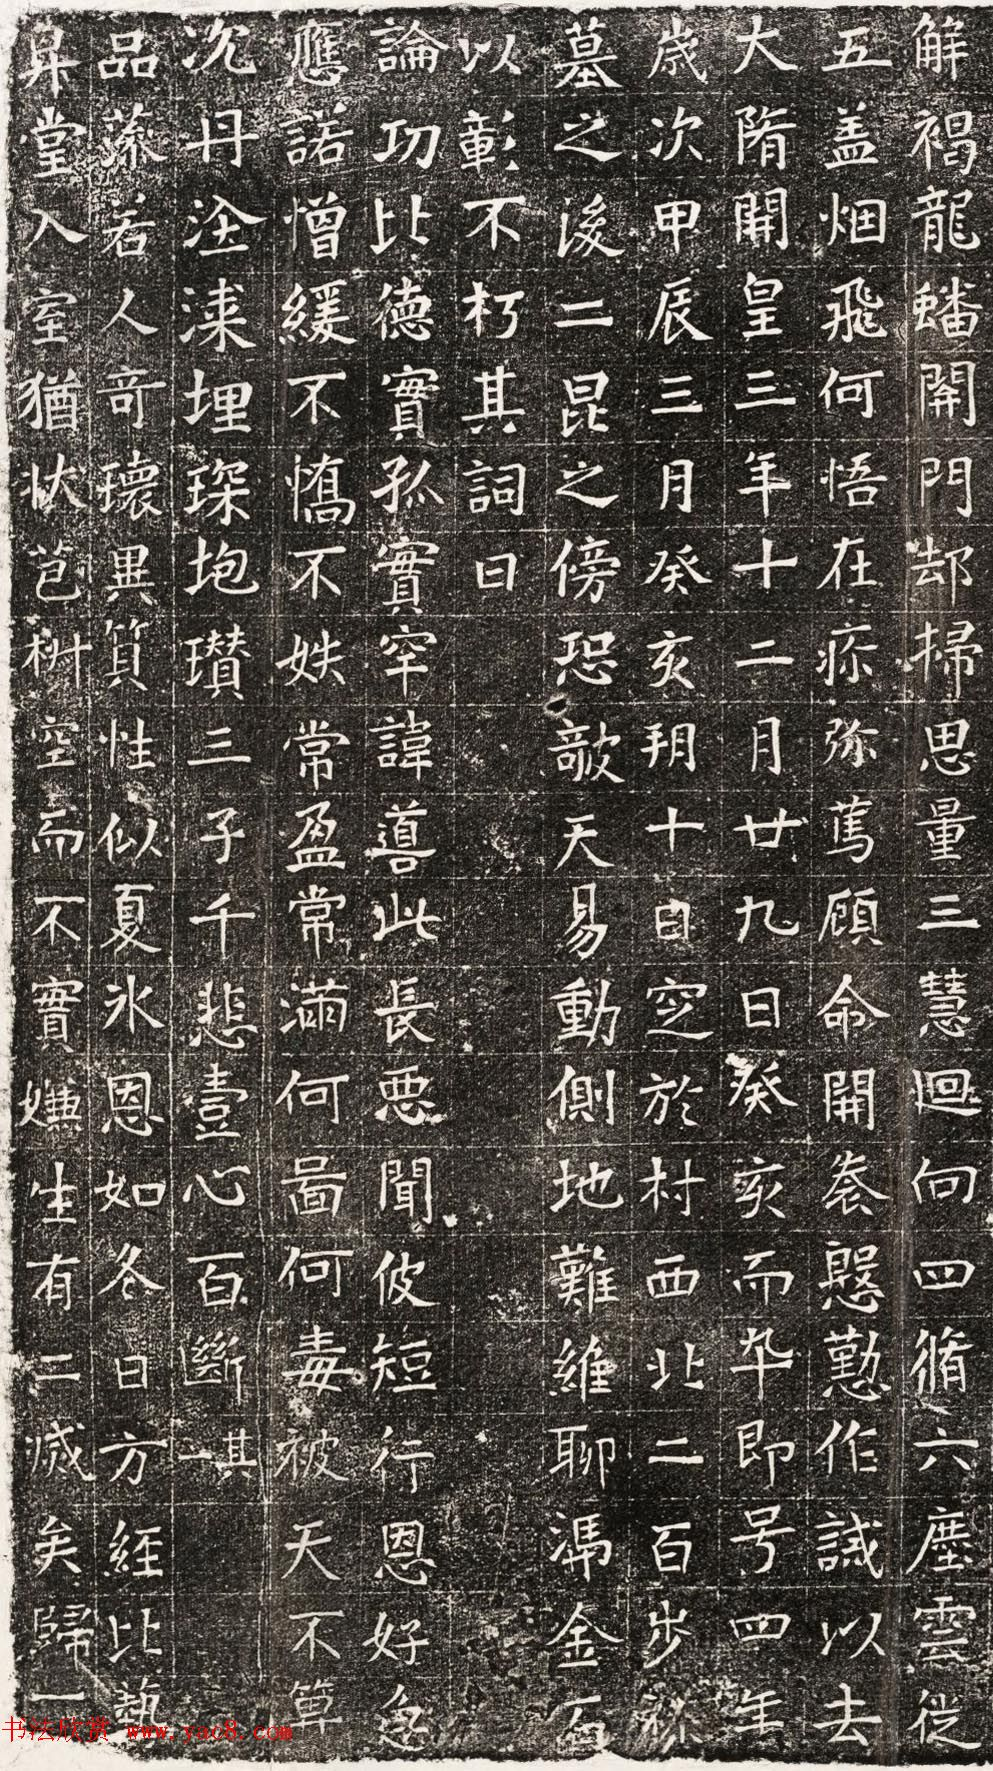 解褐龍蟠開門却掃思量三慧迴向四脩六塵雲從
五盖烟飛何悟在疹弥篤顧命開奏慇懃作誡以去
大隋開皇三年十二月廿九日癸亥而卒即号四年
歲次甲辰三月癸亥朔十日窆於村西北二百步祔
墓之後二昆之傍恐敧天易動側地難維聊馮金石
以彰不朽其詞曰
論功比德實孤實罕諱善此長惡聞彼短行恩好急
應諾憎緩不憍不姝常盈常滿何啚何毒被天不筭
沉丹塗漆埋琛抱瓚三子千悲壹心百斷其一
品藻若人奇瓌異質性似夏氷恩如冬日方經比藝
昇堂入室猶狀芭蕉空而不實嫌生有二滅矣歸一
书法欣赏 www.yac8.com